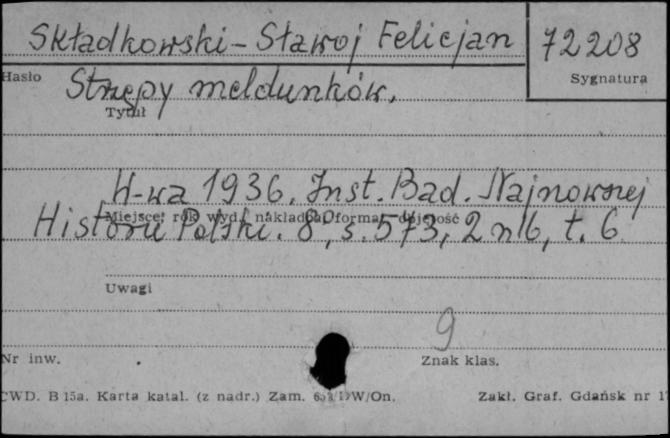 Składkowski-Sławoj Felicjan 72208
Hasło Sygnatura
Strzępy meldunków.
Tytuł
W-wa 1936. Inst. Bad. Najnowszej
Miejsce, rok wyd., nakładca, format, objętość
Historii Polski. 8°, s. 573, 2 nlb, t. 6
Uwagi
9
Nr inw. Znak klas.
CWD. B 15a. Karta katal. (z nadr.) Zam. W/On. Zakł. Graf. Gdańsk nr